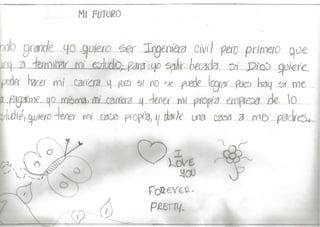 MI FUTURO
ndo grande yo quiero ser Ingeniera civil pero primero que
a terminar mi estudio; para yo salir becada si Dios quiere
poder hacer mi carrera y pues si no se puede logar pues hay si me
a pagarme yo misma mi carrera y tener mi propia empresa de lo
tudié, quiero tener mi casa propia, y darle una casa a mis padres.
I
LOVE
YOU
FOREVER.
PRETTY.